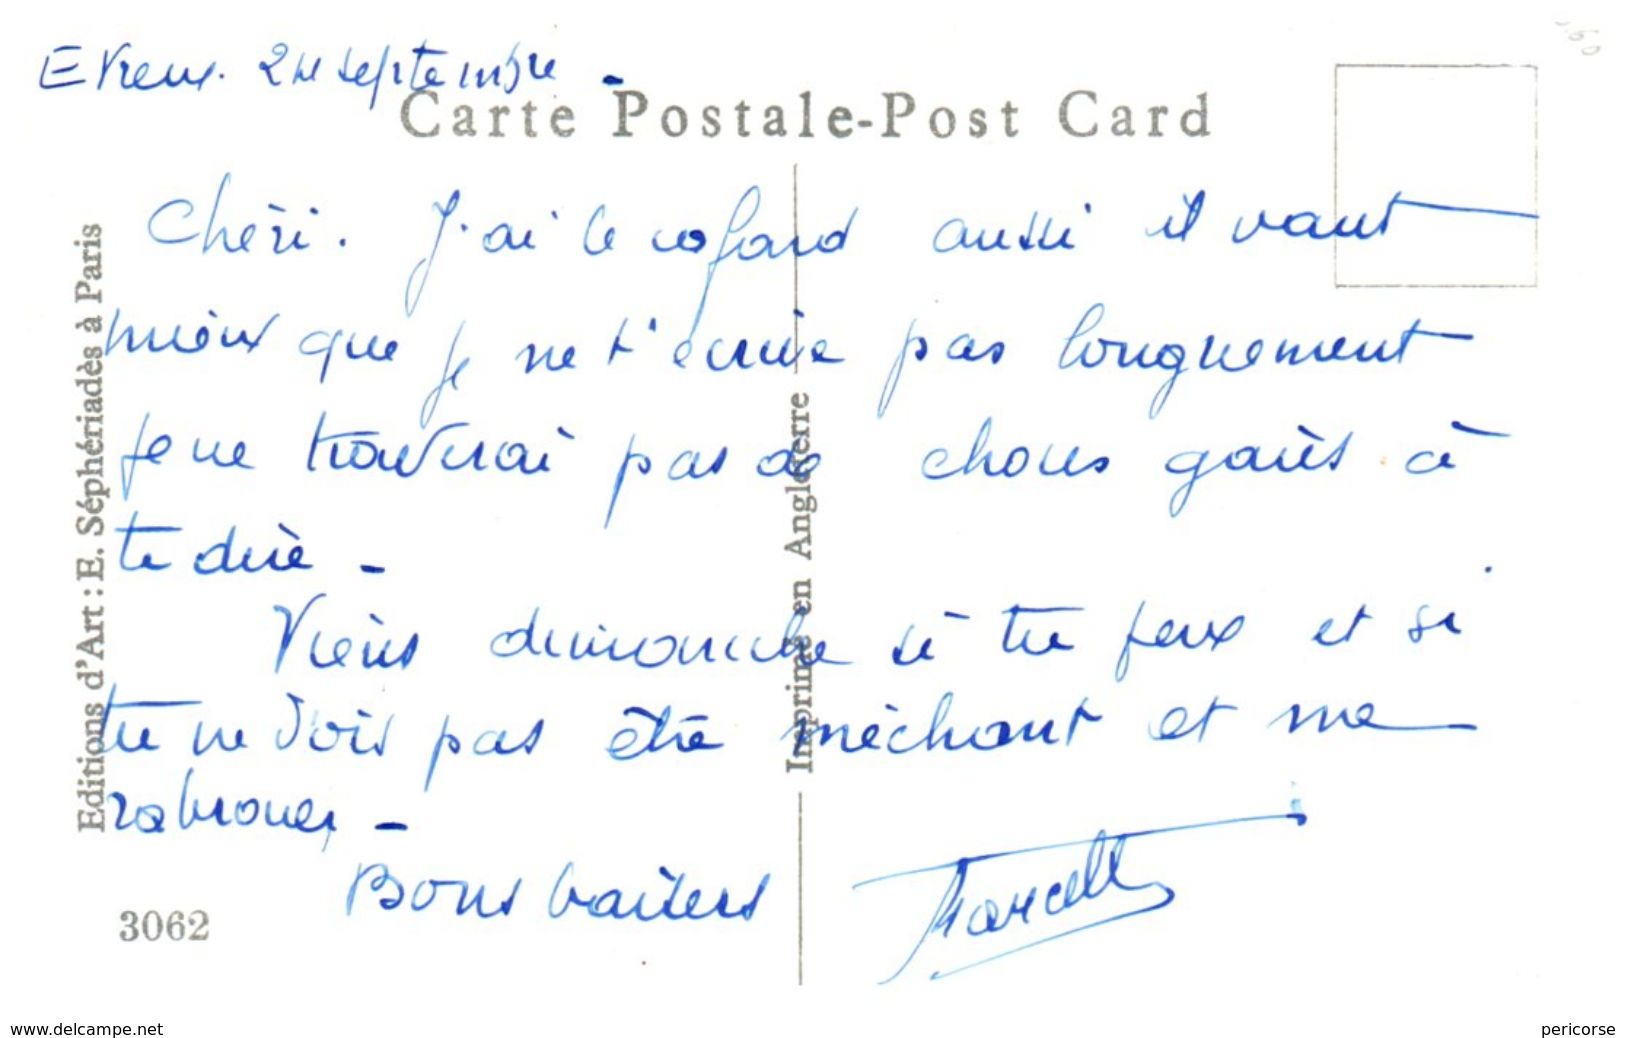 Evreux. septembre -
Carte Postale-Post Card
Chéri. J'ai le cafard aussi il vaut
mieux que je ne t'écrive pas longuement
je ne trouverai pas de choses gaies à
te dire -
Viens dimanche si tu peux et si
tu ne dois pas être méchant et me
rabrouer -
Bons baisers Marcelle
Editions d'Art : E. Séphériadès à Paris
Imprimé en Angleterre
3062
www.delcampe.net
pericorse